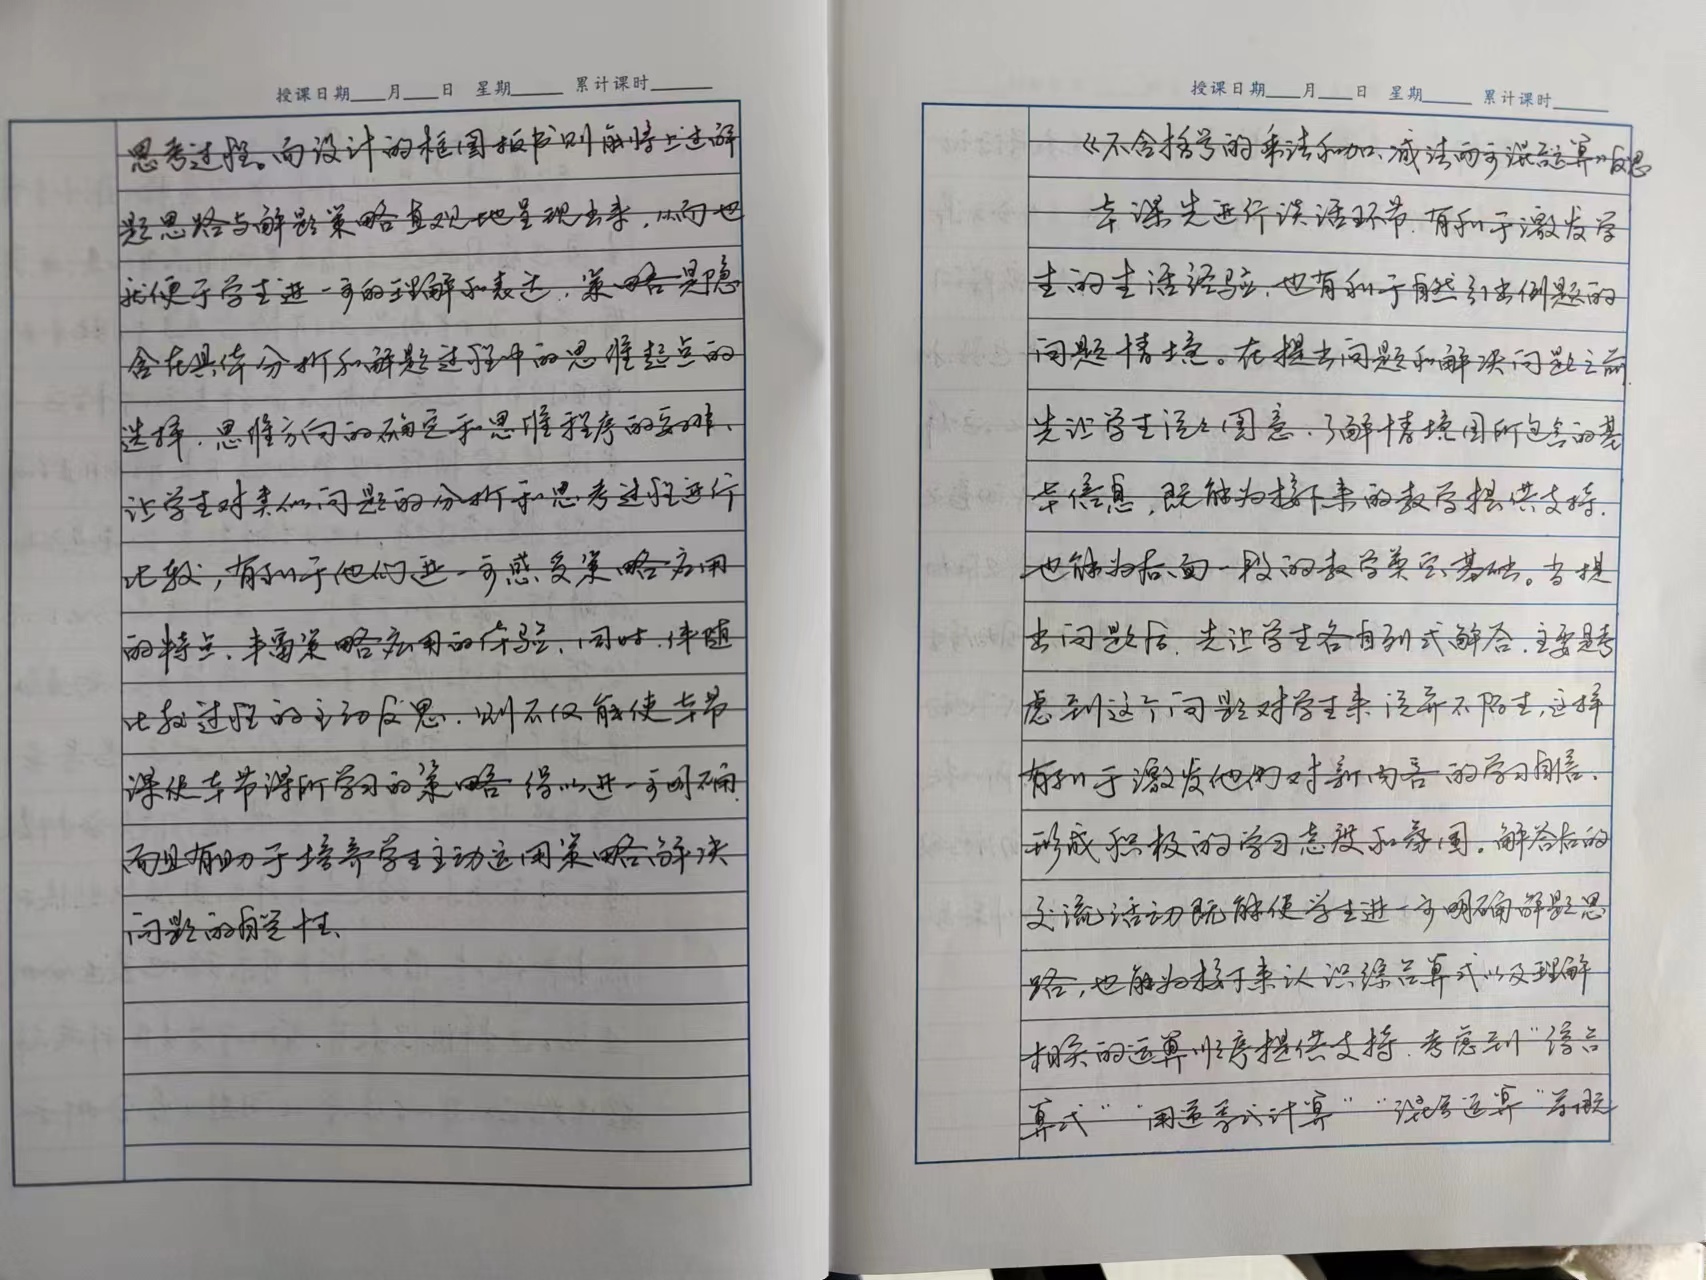 授课日期___月___日 星期____ 累计课时____
思考过程。而设计的框图板书则能将上述解
题思路与解题策略直观地呈现出来,从而也
就便于学生进一步的理解和表达,策略是隐
含在具体分析和解题过程中的思维起点的
选择,思维方向的确定和思维程序的安排、
让学生对类似问题的分析和思考过程进行
比较,有利于他们进一步感受策略应用
的特点、丰富策略应用的体验、同时,伴随
比较过程的主动反思,则不仅能使本节
课使本节课所学习的策略得以进一步明确,
而且有助于培养学生主动运用策略解决
问题的自觉性、
授课日期___月___日 星期____ 累计课时____
《不含括号的乘法和加、减法两步混合运算》反思
本课先进行谈话环节,有利于激发学
生的生活经验,也有利于自然引出例题的
问题情境。在提出问题和解决问题之前,
先让学生说说图意,了解情境图所包含的基
本信息,既能为接下来的教学提供支持,
也能为后面一段的教学奠定基础。当提
出问题后,先让学生各自列式解答,主要是考
虑到这个问题对学生来说并不陌生,这样
有利于激发他们对新内容的学习自信,
形成积极的学习态度和氛围。解答后的
交流活动既能使学生进一步明确解题思
路,也能为接下来认识综合算式以及理解
相关的运算顺序提供支持,考虑到“综合
算式”“用递等式计算”“混合运算”等概